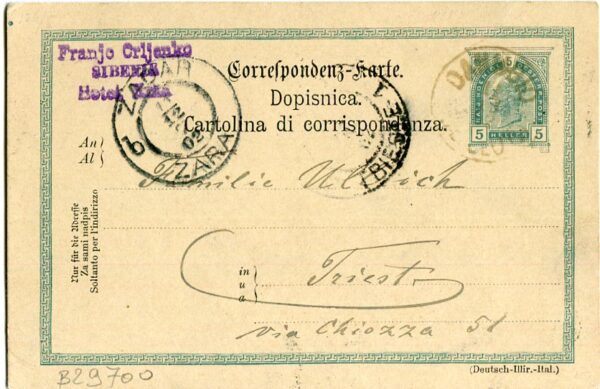 Franjo Crljenko
SIBENIK
Hotel
Correspondenz-Karte.
Dopisnica.
Cartolina di corrispondenza.
ZADAR
ZARA
02
TRIEST
5
5
HELLER
5
An
Al
Familie Ullrich
Nur für die Adresse
Za sami nadpis
Soltanto per l'indirizzo
in
u
a
Triest
via Chiozza 51
(Deutsch-Illir.-Ital.)
B29700